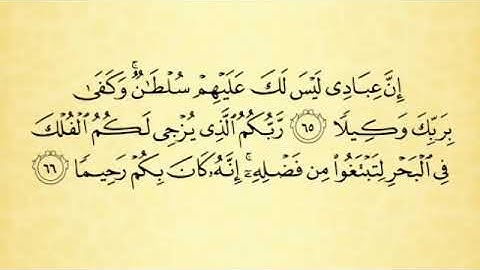 إِنَّ عِبَادِى لَيْسَ لَكَ عَلَيْهِمْ سُلْطَـٰنٌ ۚ وَكَفَىٰ
بِرَبِّكَ وَكِيلًا ٦٥ رَّبُّكُمُ ٱلَّذِى يُزْجِى لَكُمُ ٱلْفُلْكَ
فِى ٱلْبَحْرِ لِتَبْتَغُوا۟ مِن فَضْلِهِۦٓ ۚ إِنَّهُۥ كَانَ بِكُمْ رَحِيمًا ٦٦